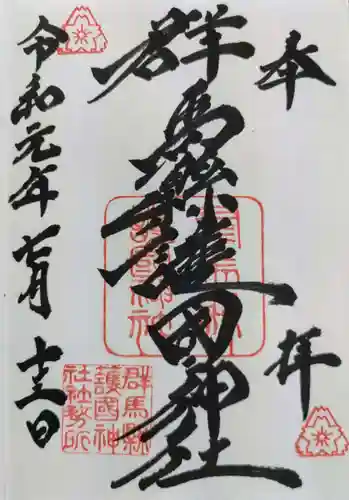 奉拝
群馬縣護國神社
令和元年七月十三日
群馬縣
護國神
社社務所